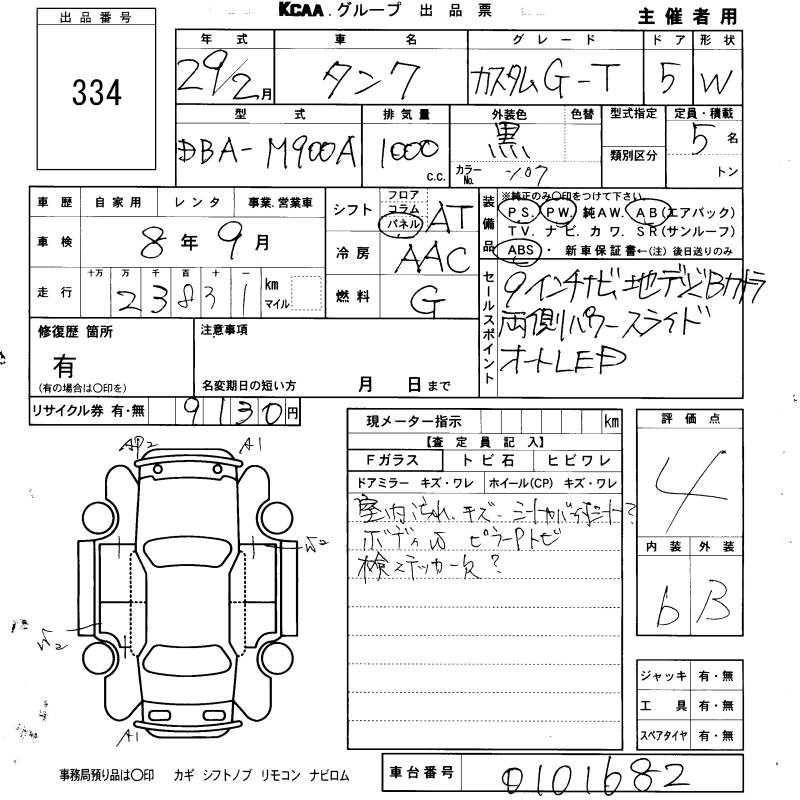 KCAA.グループ 出品票
主催者用
出品番号
334
年式 車名 グレード ドア 形状
29/2月 タンク カスタムG-T 5 W
型式 排気量 外装色 色替 型式指定 定員・積載
DBA-M900A 1000 c.c. 黒 5名
カラーNo. X07 類別区分 トン
車歴 自家用 レンタ 事業.営業車
車検 8年9月
走行 十万 万 千 百 十 一
23831 km マイル
シフト フロア コラム パネル AT
冷房 AAC
燃料 G
装備品 ※純正のみ○印をつけて下さい.
PS. PW. 純AW. AB(エアバック)
TV. ナビ. カワ. SR(サンルーフ)
ABS ・ 新車保証書←(注)後日送りのみ
セールスポイント
9インチナビ・地デジ・Bカメラ
両側パワースライド
オートLED
修復歴 箇所
有
(有の場合は○印を)
注意事項
名変期日の短い方 月 日まで
リサイクル券 有・無 9130円
現メーター指示 km
【査定員記入】
Fガラス トビ石 ヒビワレ
ドアミラー キズ・ワレ ホイール(CP) キズ・ワレ
室内汚れ、キズ
ボディ ピラーPトビ
検ステッカー欠?
評価点
4
内装 外装
b B
A1
W2
W2
A1
ジャッキ 有・無
工具 有・無
スペアタイヤ 有・無
事務局預り品は○印 カギ シフトノブ リモコン ナビロム
車台番号 0101682